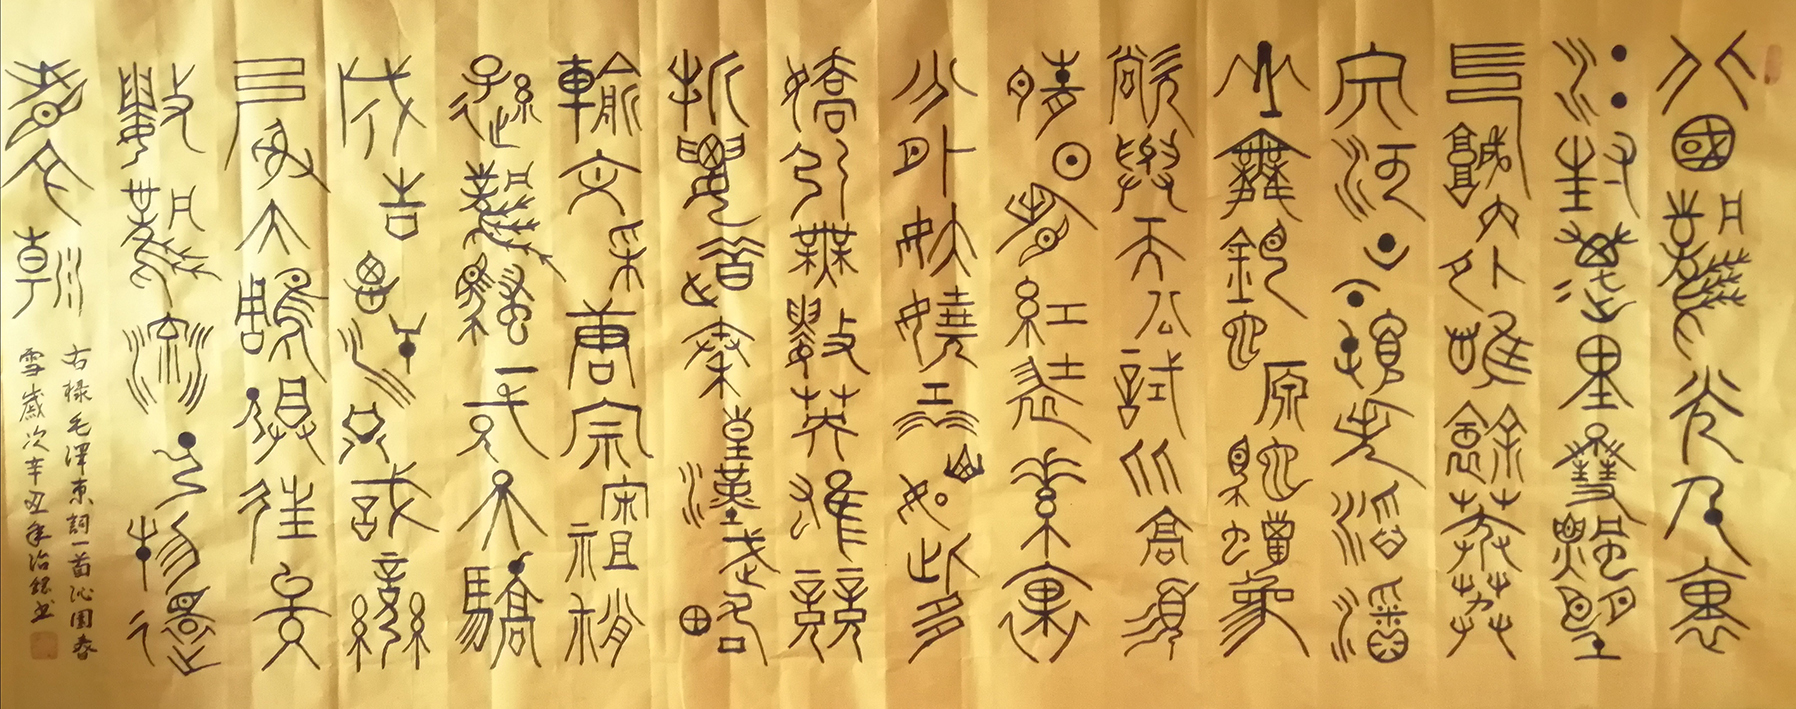 北國風光千里
冰封萬里雪飄望
長城內外惟餘莽莽
大河上下頓失滔滔
山舞銀蛇原馳蠟象
欲與天公試比高須
晴日看紅裝素裹
分外妖嬈江山如此多
嬌引無數英雄競
折腰惜秦皇漢武略
輸文采唐宗宋祖稍
遜風騷一代天驕
成吉思汗只識彎
弓射大鵰俱往矣
數風流人物還
看今朝
右録毛澤東詞一首沁園春
雪歲次辛丑年治銘書